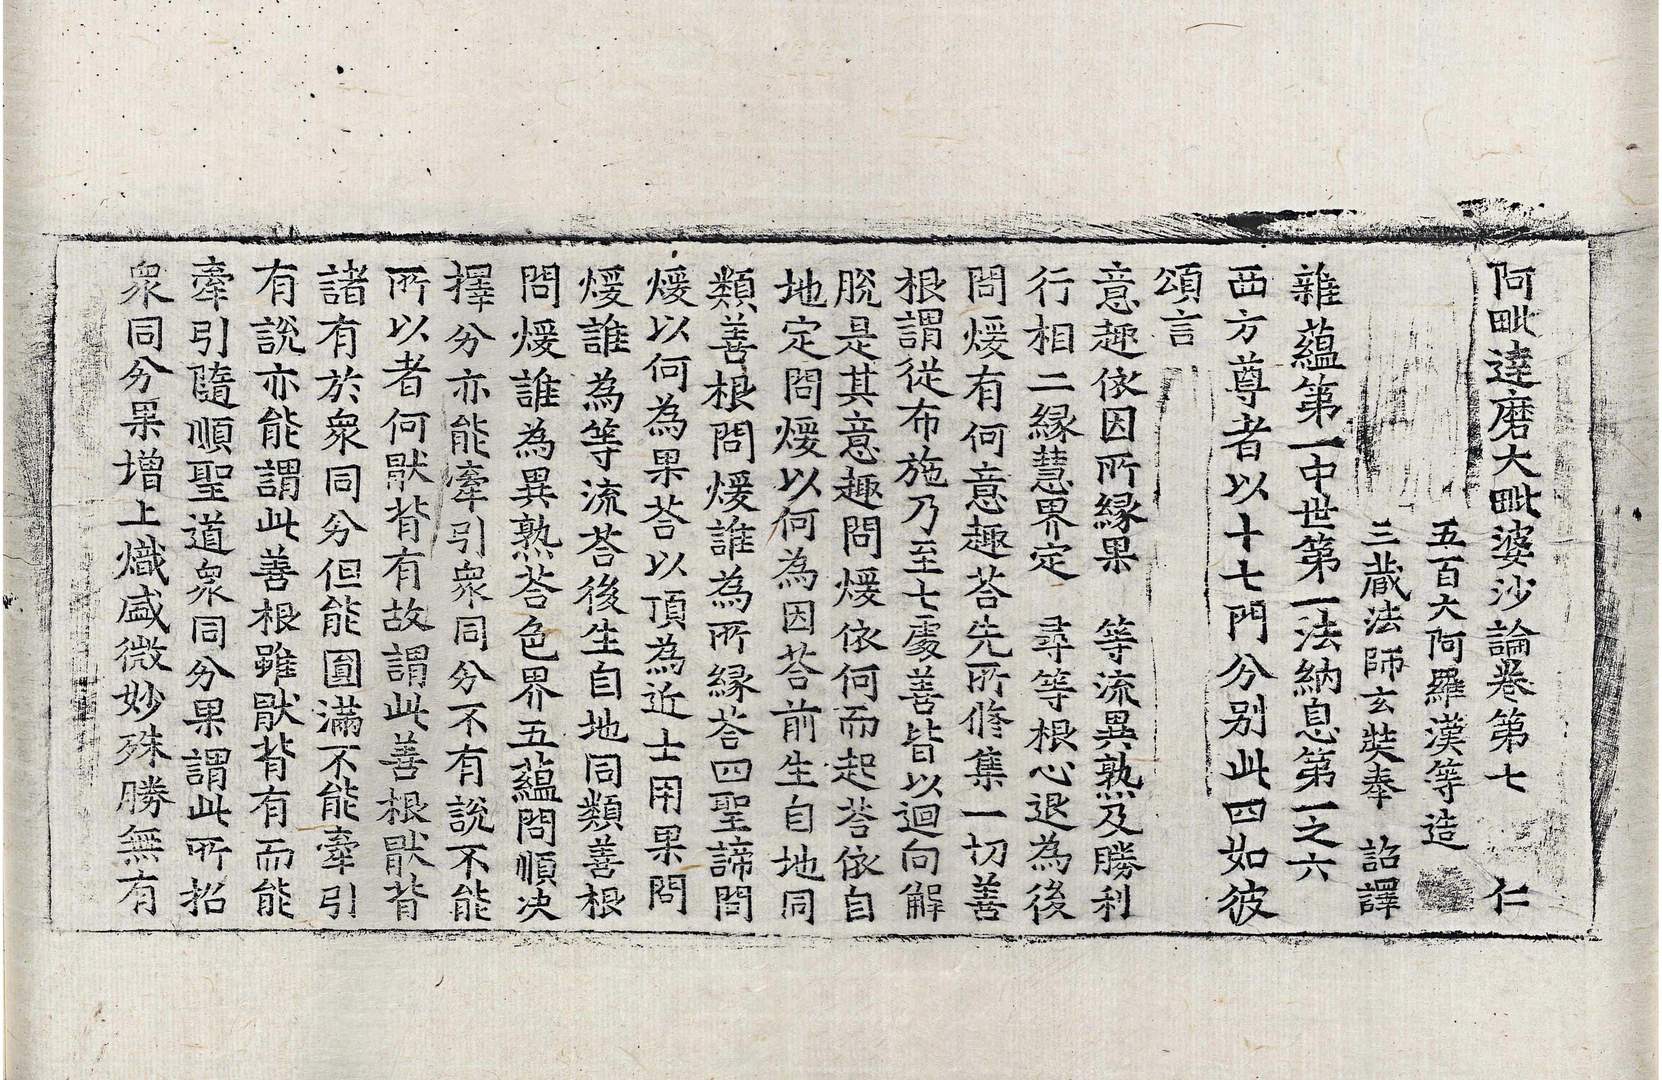 阿毗達磨大毗婆沙論卷第七 仁
五百大阿羅漢等造
三藏法師玄奘奉 詔譯
雜蘊第一中世第一法納息第一之六
西方尊者以十七門分別此四如彼
頌言
意趣依因所緣果 等流異熟及勝利
行相二緣慧界定 尋等根心退為後
問煖有何意趣荅先所修集一切善
根謂從布施乃至七處善皆以迴向解
脫是其意趣問煖依何而起荅依自
地定問煖以何為因荅前生自地同
類善根問煖誰為所緣荅四聖諦問
煖以何為果荅以頂為近士用果問
煖誰為等流荅後生自地同類善根
問煖誰為異熟荅色界五蘊問順決
擇分亦能牽引衆同分不有說不能
所以者何厭背有故謂此善根厭背
諸有於衆同分但能圓滿不能牽引
有說亦能謂此善根雖厭背有而能
牽引隨順聖道衆同分果謂此所招
衆同分果增上熾盛微妙殊勝無有